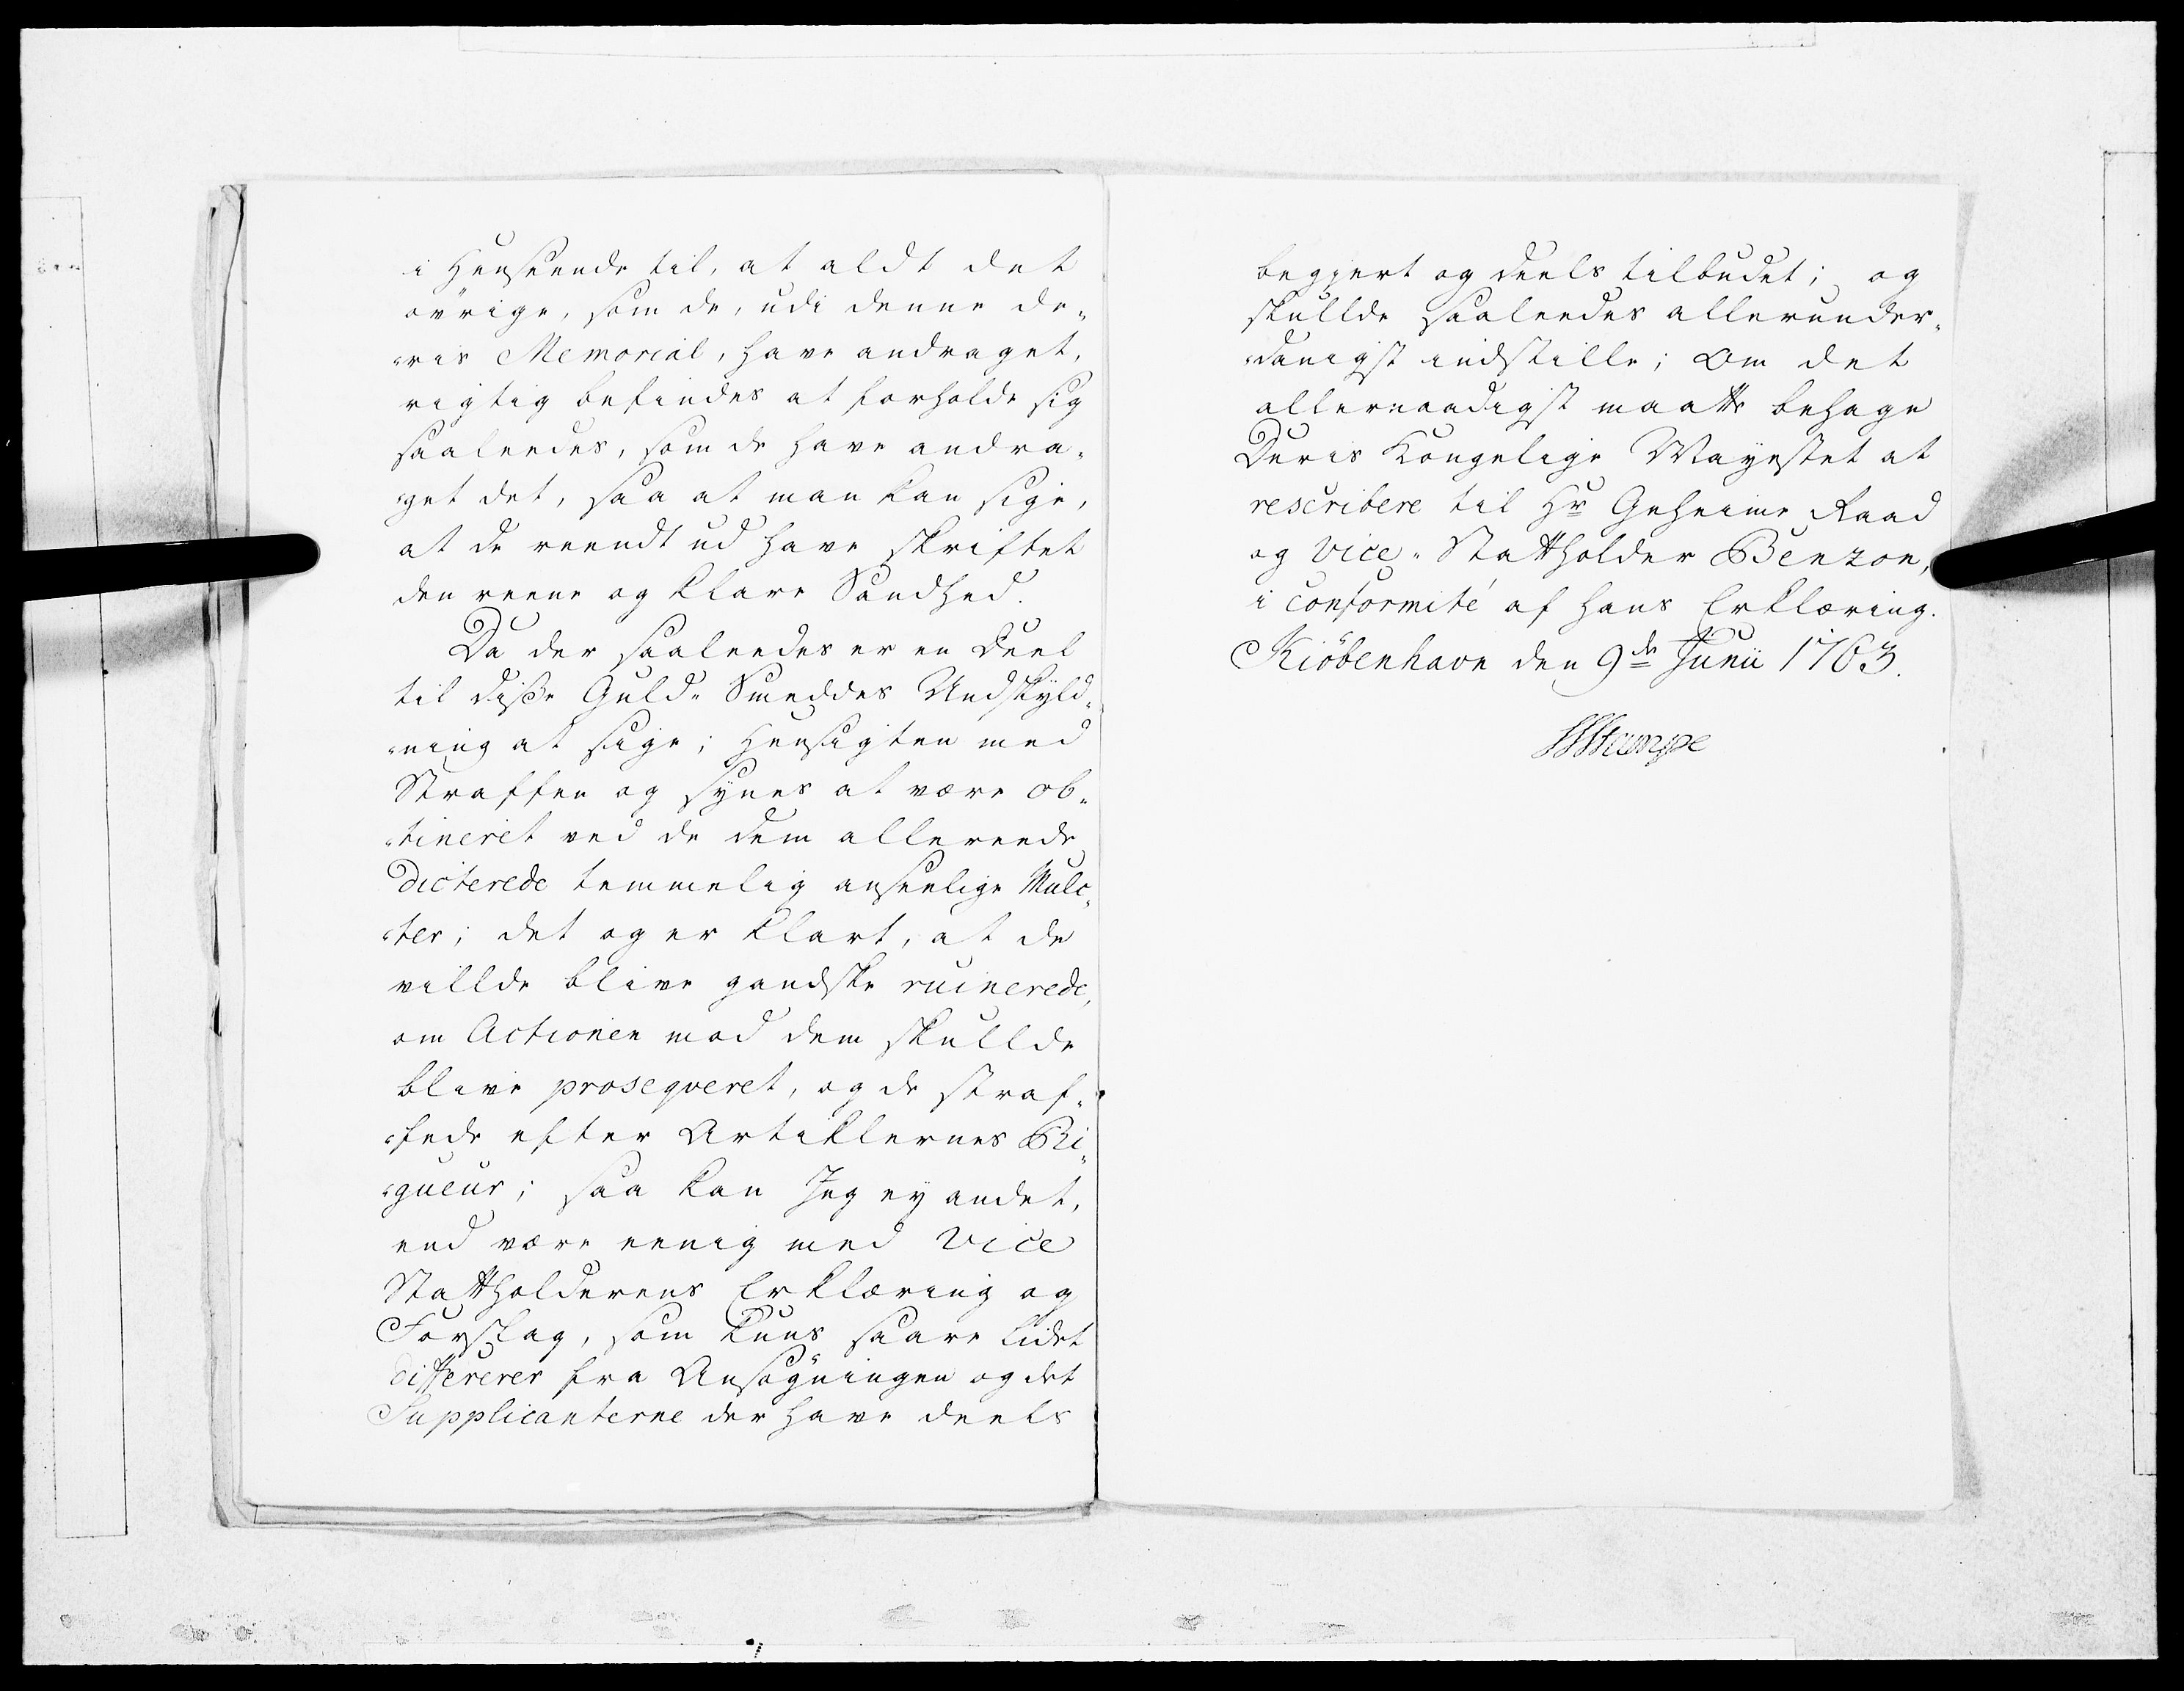 i Henseende til, at aldt det
övrige, som de, udi denne de-
-ris Memorial, have andraget,
rigtig befindes at forholde sig
saaleedes, som de have andra-
-get det, saa at man kan sige,
at de reendt ud have skriftet
den reene og klare Sandhed.
Da der saaleedes er en Deel
til disse Guld-Smeddes Undskyld-
-ning at sige; Hensigten med
Straffen og synes at være ob-
-tineret ved de dem allereede
dicterede temmelig anseelige Mulc-
-ter; det og er klart, at de
villde blive gandske ruinerede,
om Actionen mod dem skullde
blive proseqveret, og de straf-
-fede efter Artiklernes Ri-
-gueur; saa kan Jeg ey andet,
end være eenig med Vice
Stattholderens Erklæring og
Forslag, som kuns saare lidet
differerer fra Ansøgningen og det
Supplicanterne der have deels
begjert og deels tilbudet; og
skullde saaleedes allerunder-
-danigst indstille; Om det
allernaadigst maatte behage
Deris Kongelige Mayestet at
rescribere til Hr Geheime Raad
og Vice-Stattholder Benzon,
i conformité af hans Erklæring.
Kiöbenhavn den 9de Junii 1763.